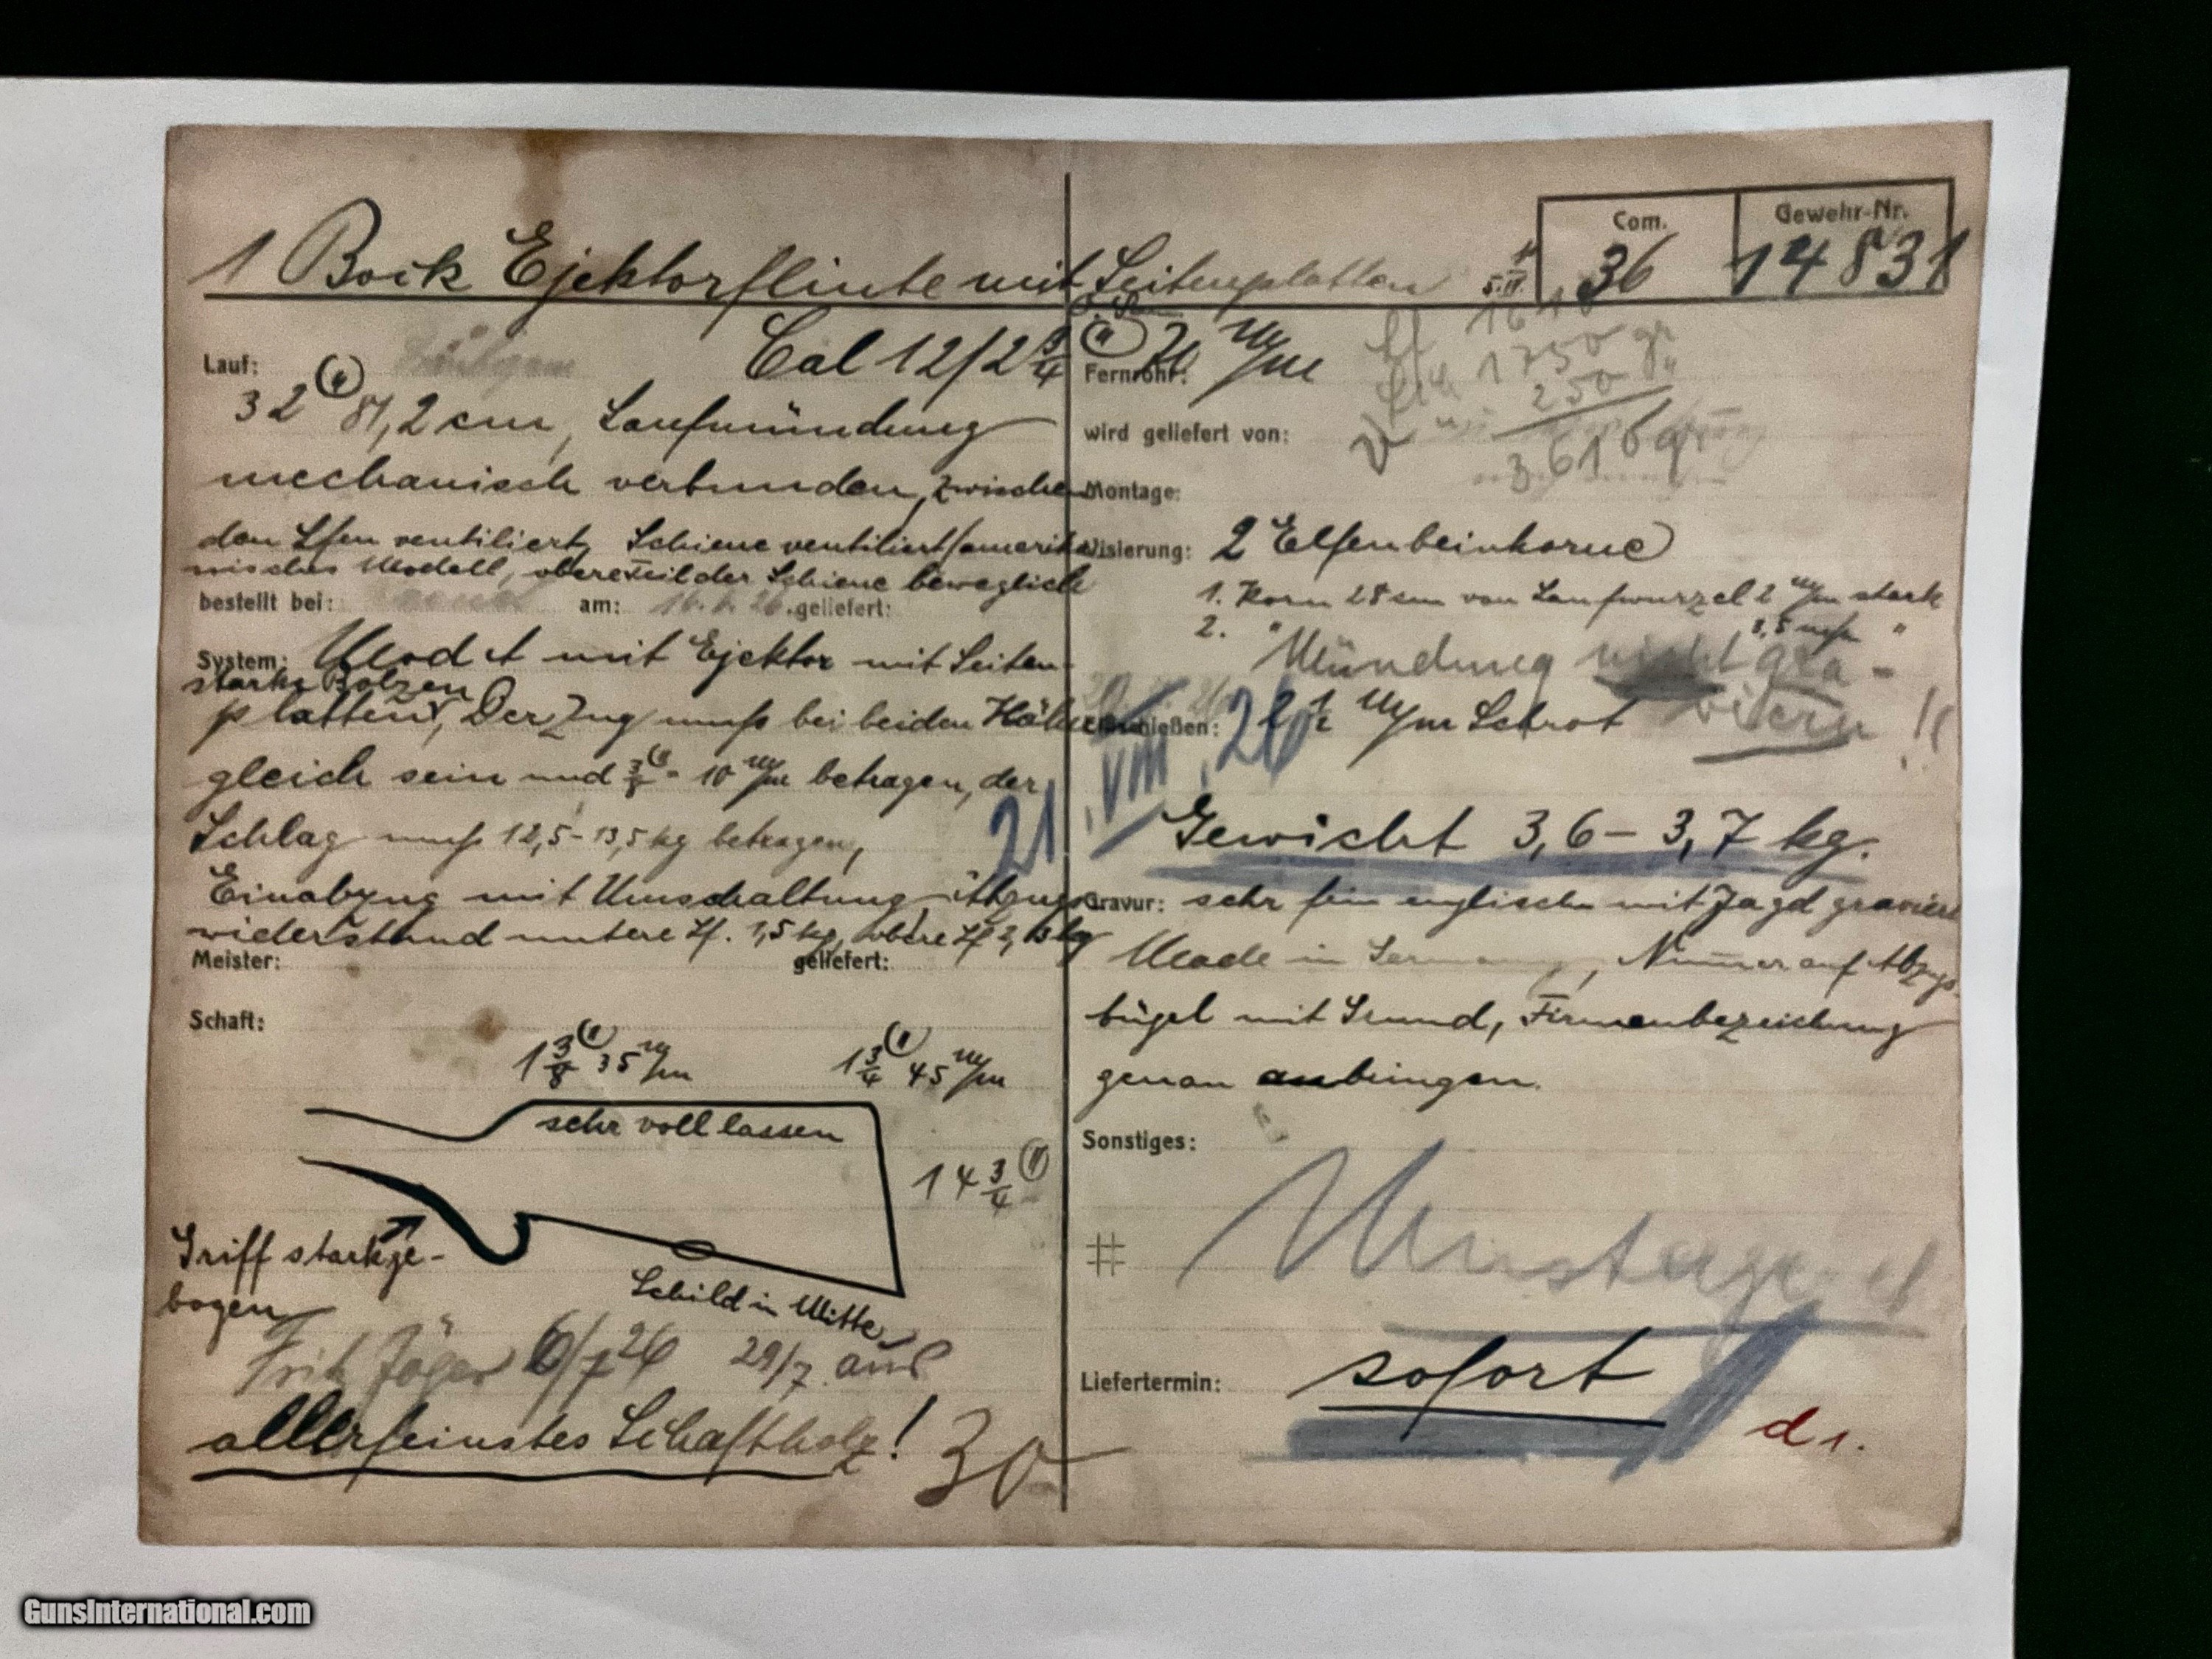 1 Bock Ejektorflinte mit Seitenplatten
Com.
36
Gewehr-Nr.
14831
Lauf:
Cal 12/2 3/4 " 70 m/m
32" 81,2 cm, Laufmündung
mechanisch verbunden, zwischen
den Lfen ventiliert, Schiene ventiliert (amerika-
nisches Modell, oberer Teil der Schiene beweglich
bestellt bei:
am: 16. 6. 26. geliefert:
System: Mod A mit Ejektor mit Seiten-
starke Bolzen
platten, Der Zug muß bei beiden
gleich sein und 3/8" = 10 m/m betragen, der
Schlag muß 12,5 – 13,5 kg betragen,
Einabzug mit Umschaltung, Abzugs-
widerstand untere Lf. 1,5 kg, obere Lf
Meister:
geliefert:
Schaft:
1 3/8" 35 m/m
1 3/4" 45 m/m
sehr voll lassen
14 3/4"
Griff stark ge-
bogen
Schild in Mitte
Fritz Jäger 6/7 26 29/7 aus
allerfeinstes Schaftholz!
30
Fernrohr:
1750 gr
250 "
3616 gr
wird geliefert von:
Montage:
Visierung: 2 Elfenbeinkorne
1. Korn 28 cm von Laufwurzel 2 m/m stark
2. " Mündung 3,5 m/m "
nicht gra-
vieren !!
Einschießen: 2 1/2 m/m Schrot
21. VIII. 26
Gewicht 3,6 – 3,7 kg.
Gravur: sehr fein englisch mit Jagd graviert
Made in Germany, Nummer auf Abzugs-
bügel mit Grund, Firmenbezeichnung
genau anbringen.
Sonstiges:
#
Liefertermin: sofort
d 1.
GunsInternational.com